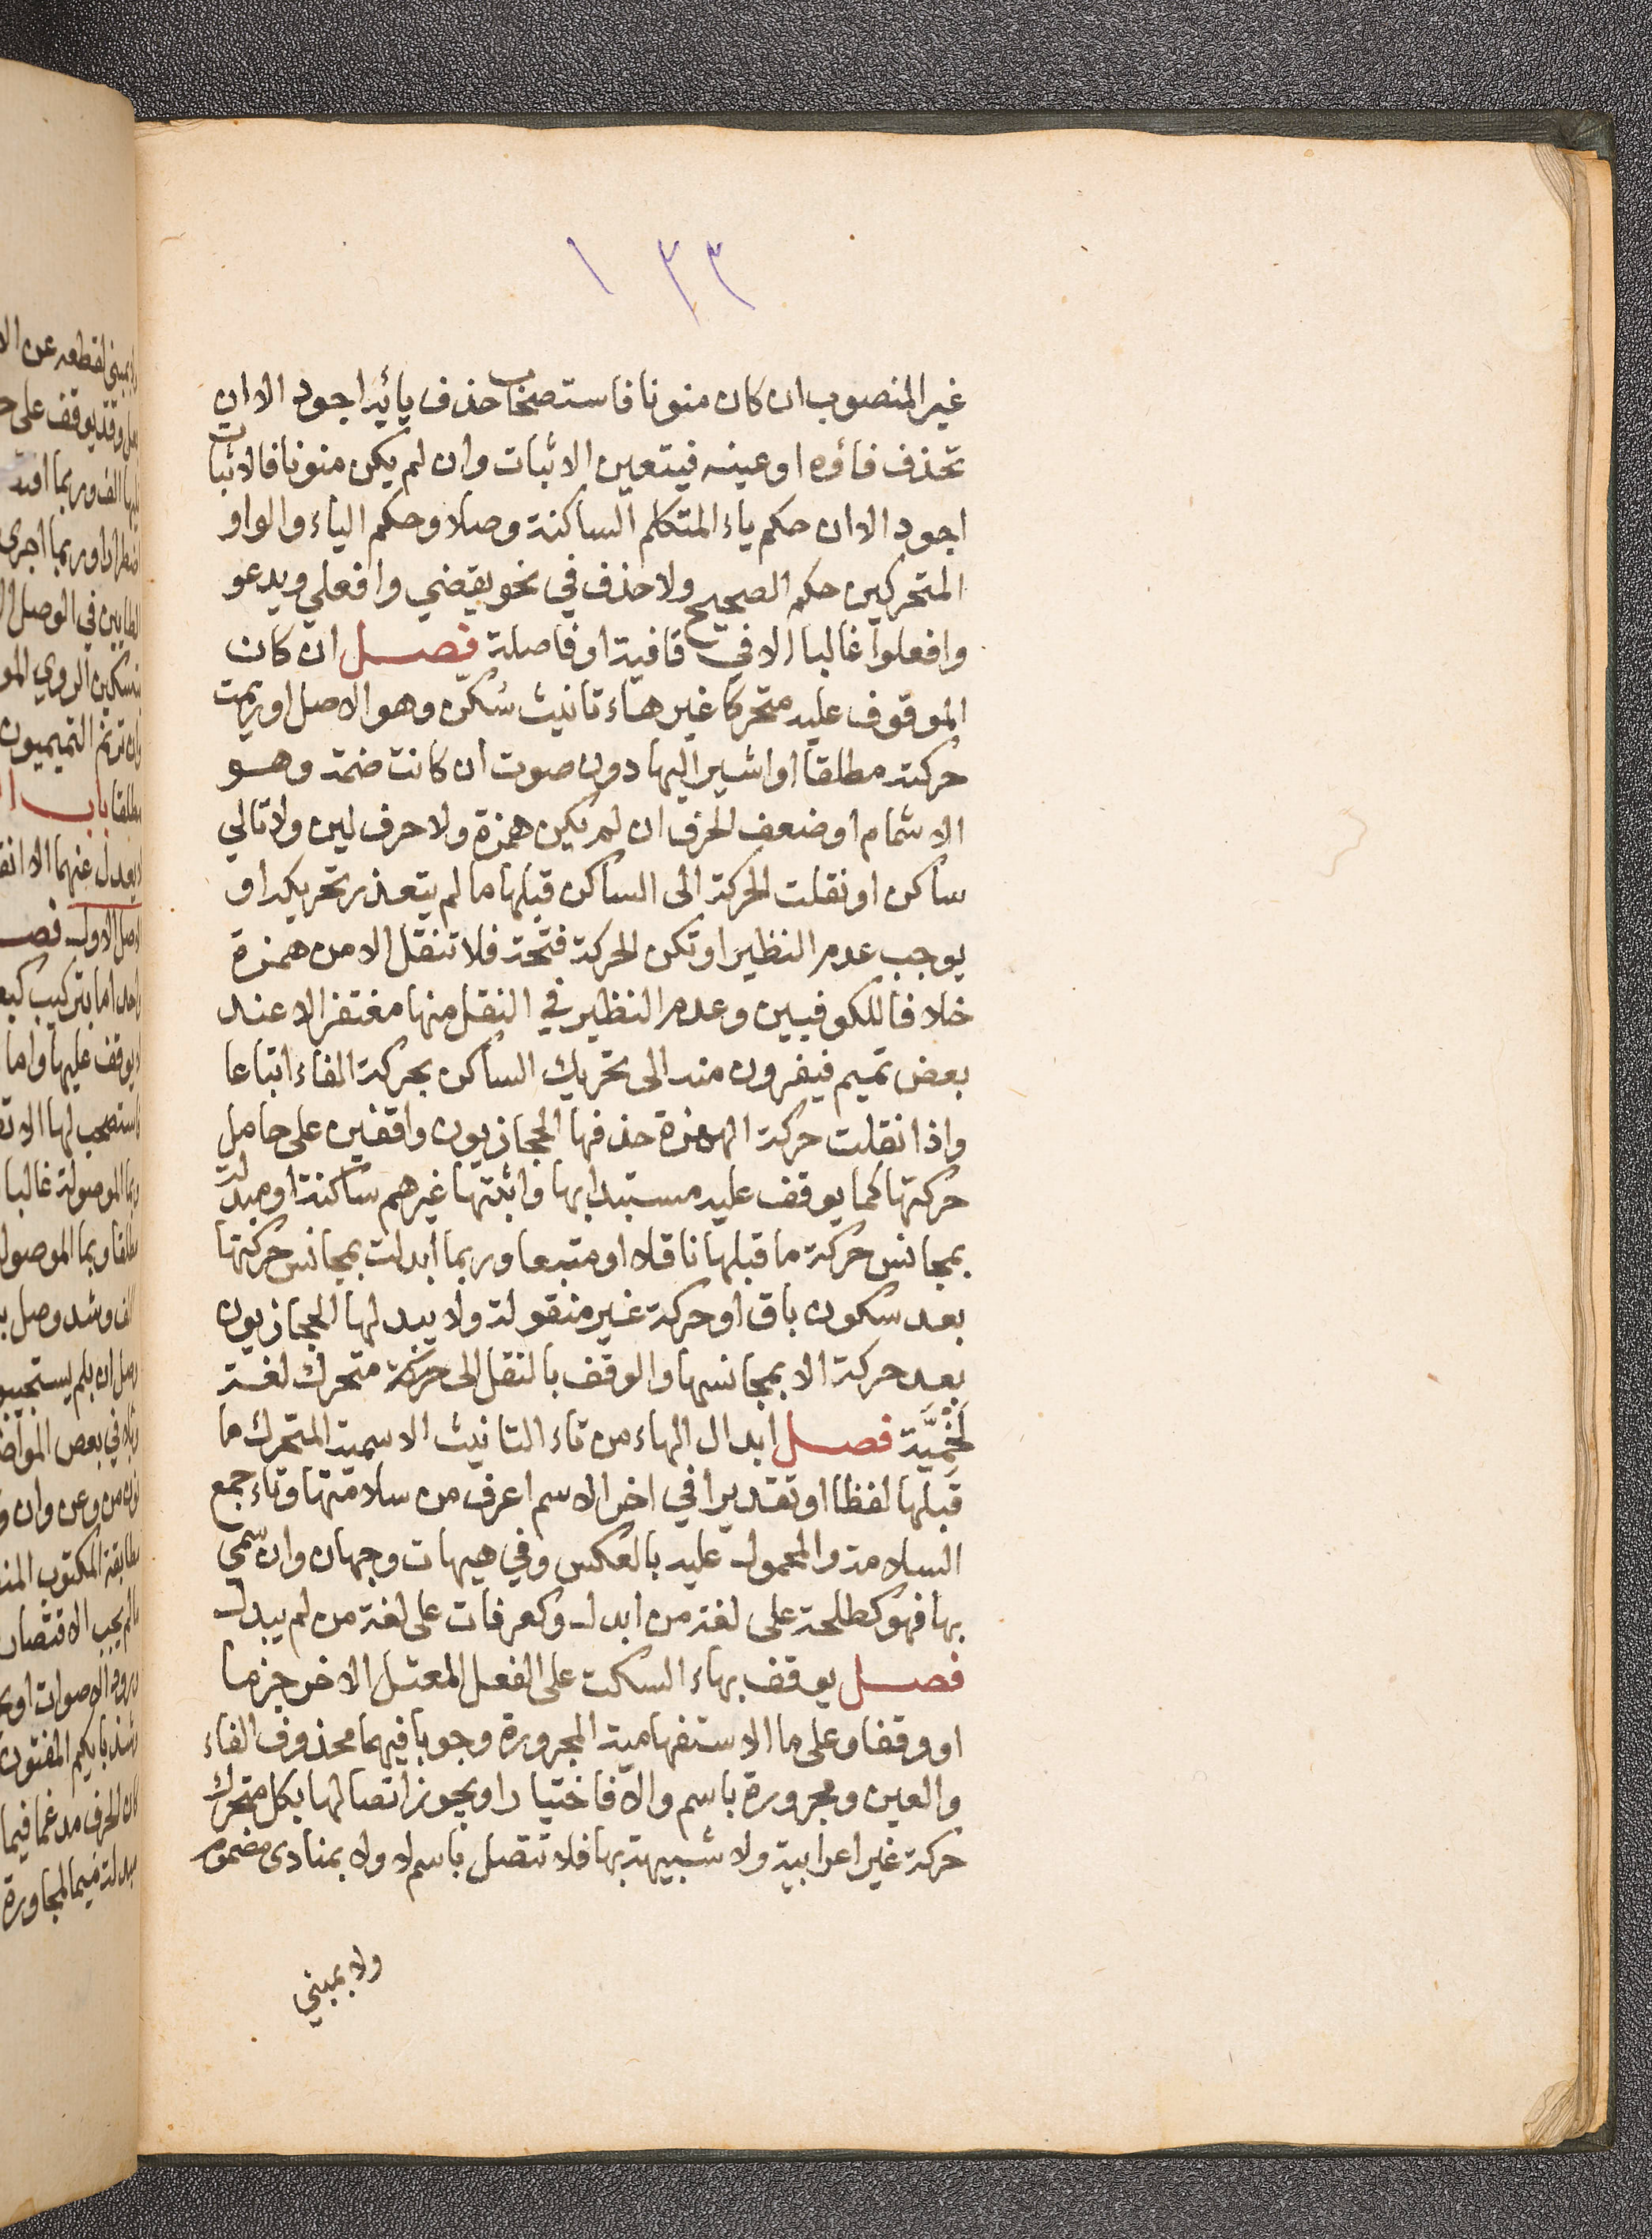 ١٣٣
غير المنصوب ان كان منونا فاستصحاب حذف يائه اجود الا ان
تحذف فاؤه او عينه فيتعين الاثبات وان لم يكن منونا فالاثبات
اجود الا ان حكم ياء المتكلم الساكنة وصلا وحكم الياء والواو
المتحركين حكم الصحيح ولا حذف في نحو يقضي وافعلي ويدعو
وافعلوا غالبا الا في قافية او فاصلة فصل ان كان
الموقوف عليه متحركا غير هاء تانيث سُكّن وهو الاصل اوريمت
حركته مطلقا او اشير اليها دون صوت ان كانت ضمة وهو
الاشمام او ضعف الحرف ان لم يكن همزة ولا حرف لين ولا تالي
ساكن او نقلت الحركة الى الساكن قبلها ما لم يتعذر تحريكه او
يوجب عدم النظير او تكن الحركة فتحة فلا تنقل الا من همزة
خلافا للكوفيين وعدم النظير في النقل منها مغتفر الا عند
بعض تميم فيفرون منه الى تحريك الساكن بحركة الفاء اتباعا
واذا نقلت حركة الهمزة حذفها الحجازيون واقفين على حامل
حركتها كما يوقف عليه مستبدا بها واثبتها غيرهم ساكنة او مبدلة
بمجانس حركة ما قبلها ناقلا او متبعا وربما ابدلت بمجانس حركتها
بعد سكون باق او حركة غير منقولة ولا يبدلها الحجازيون
بعد حركة الا بمجانسها والوقف بالنقل الى حركة متحرك لغة
لَخْمِيَّة فصل ابدال الهاء من تاء التانيث الاسمية المتحرك ما
قبلها لفظا او تقديرا في اخر الاسم اعرف من سلامتها وتاء جمع
السلامة والمحمول عليه بالعكس وفي هيهات وجهان وان سمّي
بها فهو كطلحة على لغة من ابدل وكعرفات على لغة من لم يبدل
فصل يوقف بهاء السكت على الفعل المعتل الاخر جزما
او وقفا وعلى ما الاستفهامية المجرورة وجوبا فيهما محذوف الفاء
والعين ومجرورة باسم والا فاختيارا ويجوز اتصالها بكل متحرك
حركة غير اعرابية ولا شبيهة بها فلا تتصل باسم لا ولا بمنادى مضموم
ولا بمبني